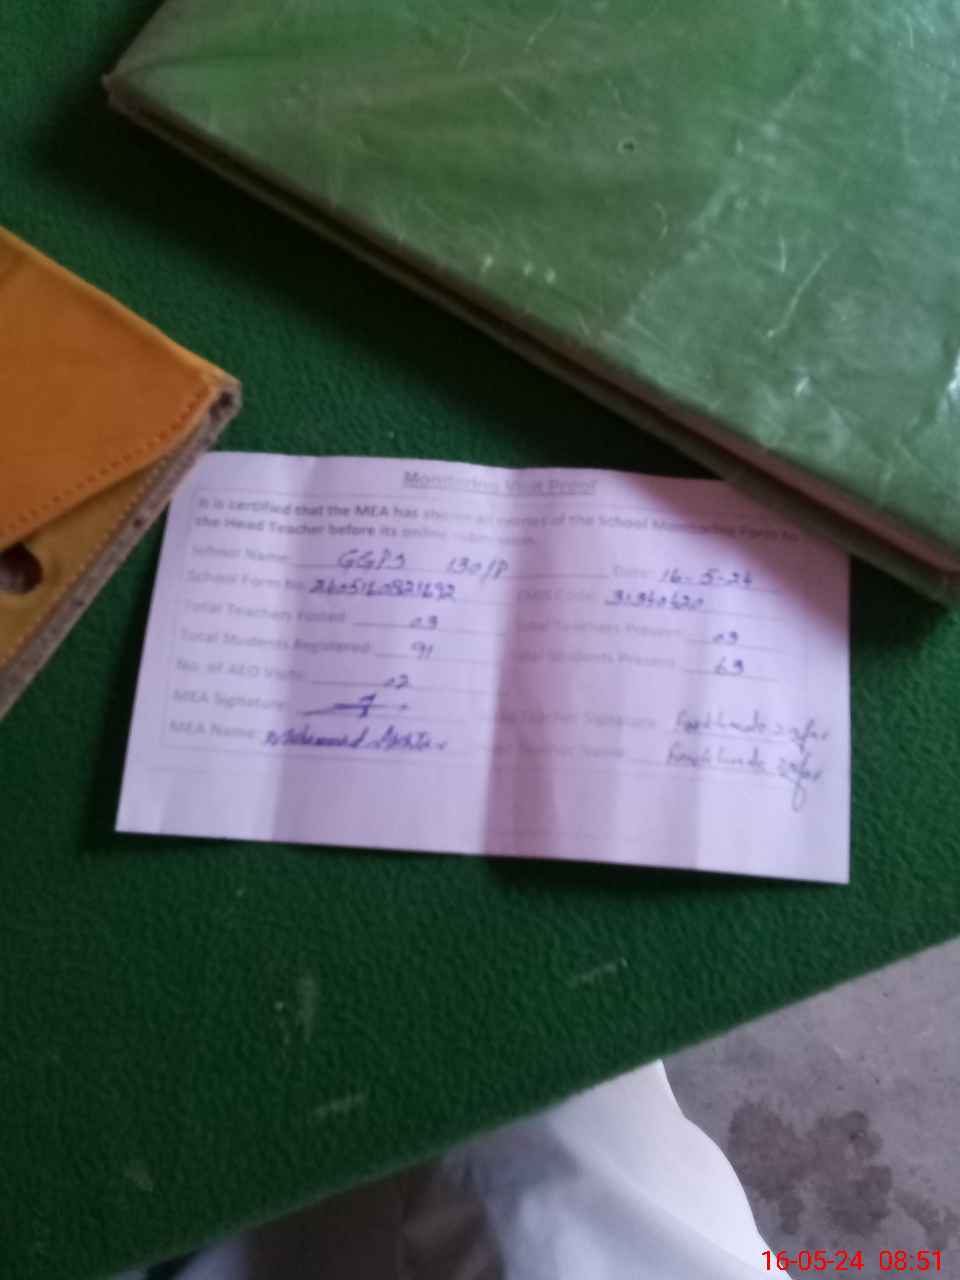 Monitoring Visit Proof
It is certified that the MEA has shown all entries of the School Monitoring Form to
the Head Teacher before its online submission.
School Name: GGPS 130/P Date: 16-5-24
School Form No. EMIS Code: 31340620
Total Teachers Posted 03 Total Teachers Present: 03
Total Students Registered: 91 Total Students Present: 63
No. of AEO Visits: 02
MEA Signature: Head Teacher Signature:
MEA Name: Muhammad Head Teacher Name:
16-05-24 08:51